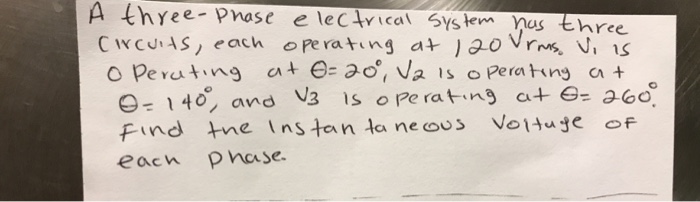 A three-phase electrical System has three
Circuits, each operating at 120 Vrms. V1 is
Operating at θ=20°, V2 is operating at
θ=140°, and V3 is operating at θ=260°.
Find the Instantaneous Voltage of
each phase.